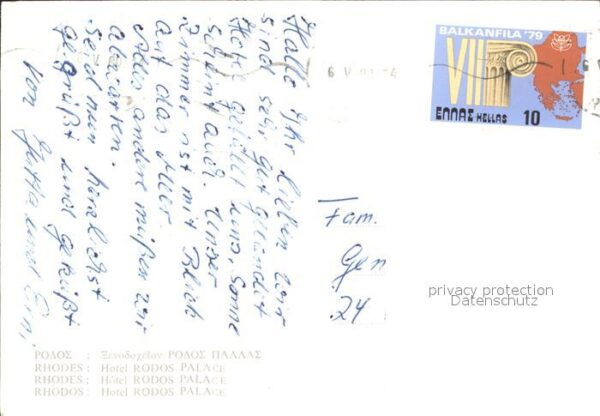 Hallo Ihr Lieben wir
sind sehr gut gelandet
Hotel gefällt uns, Sonne
scheint auch. Unser
Zimmer ist mit Blick
auf das Meer.
Alles andere müssen wir
abwarten.
Seid nun herzlichst
gegrüßt und geküßt
von Jutta und
BALKANFILA '79
VII
ΕΛΛΑΣ HELLAS 10
Fam.
Gen
24
privacy protection
Datenschutz
ΡΟΔΟΣ : Ξενοδοχεῖον ΡΟΔΟΣ ΠΑΛΛΑΣ
RHODES : Hotel RODOS PALACE
RHODES : Hôtel RODOS PALACE
RHODOS : Hotel RODOS PALACE